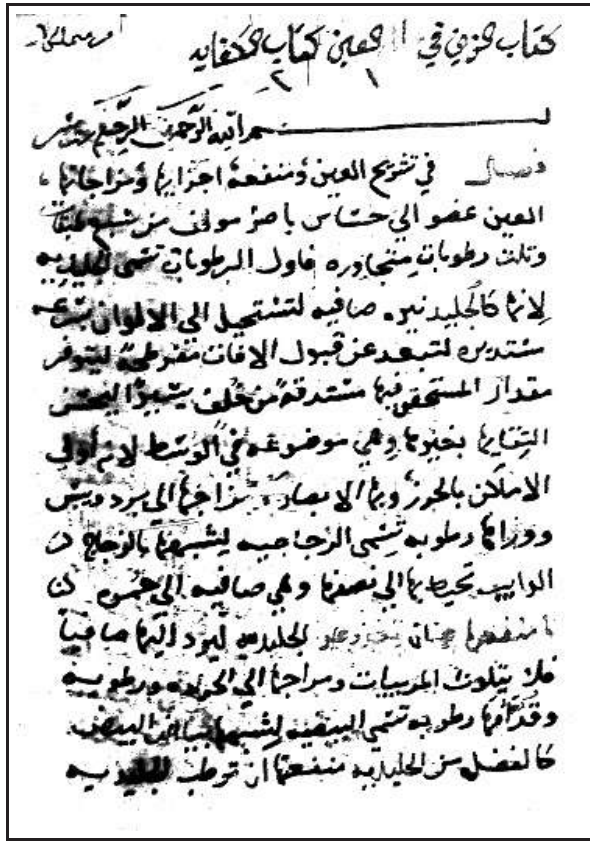 كتاب في العين كتاب الكفايه
١ ٢
بسم الله الرحمن الرحيم
فصل في تشريح العين ومنفعة اجزايها ومزاجاتها
العين عضو الي حساس باصر مولف من سبع طبقات
وثلث رطوبات متجاوره فاول الرطوبات تسمى الجليديه
لانها كالجليد نيره صافيه لتستحيل الى الالوان بسرعه
مستديره لتبعد عن قبول الافات مفرطحه ليتوفر
مقدار المستحقى فيها مستدقه من خلف يسيرا ليحسن
التقايها بغيرها وهي موضوعه في الوسط لانه أولى
الاماكن بالحرز وبها الابصار مزاجها الي برد ويبس
ووراها رطوبه تسمى الزجاجيه لشبهها بالزجاج
الدايب تحيط بها الي نصفها وهي صافيه الى حمره
منفعتها ان تغذو الجليديه ليرد اليها صافيا
فلا يتلوث المرييات ومزاجها الي الحراره ورطوبه
وقدامها رطوبه تسمى البيضيه لشبهها ببياض البيض
كالفضل من الجليديه منفعتها ان ترطب الجليديه